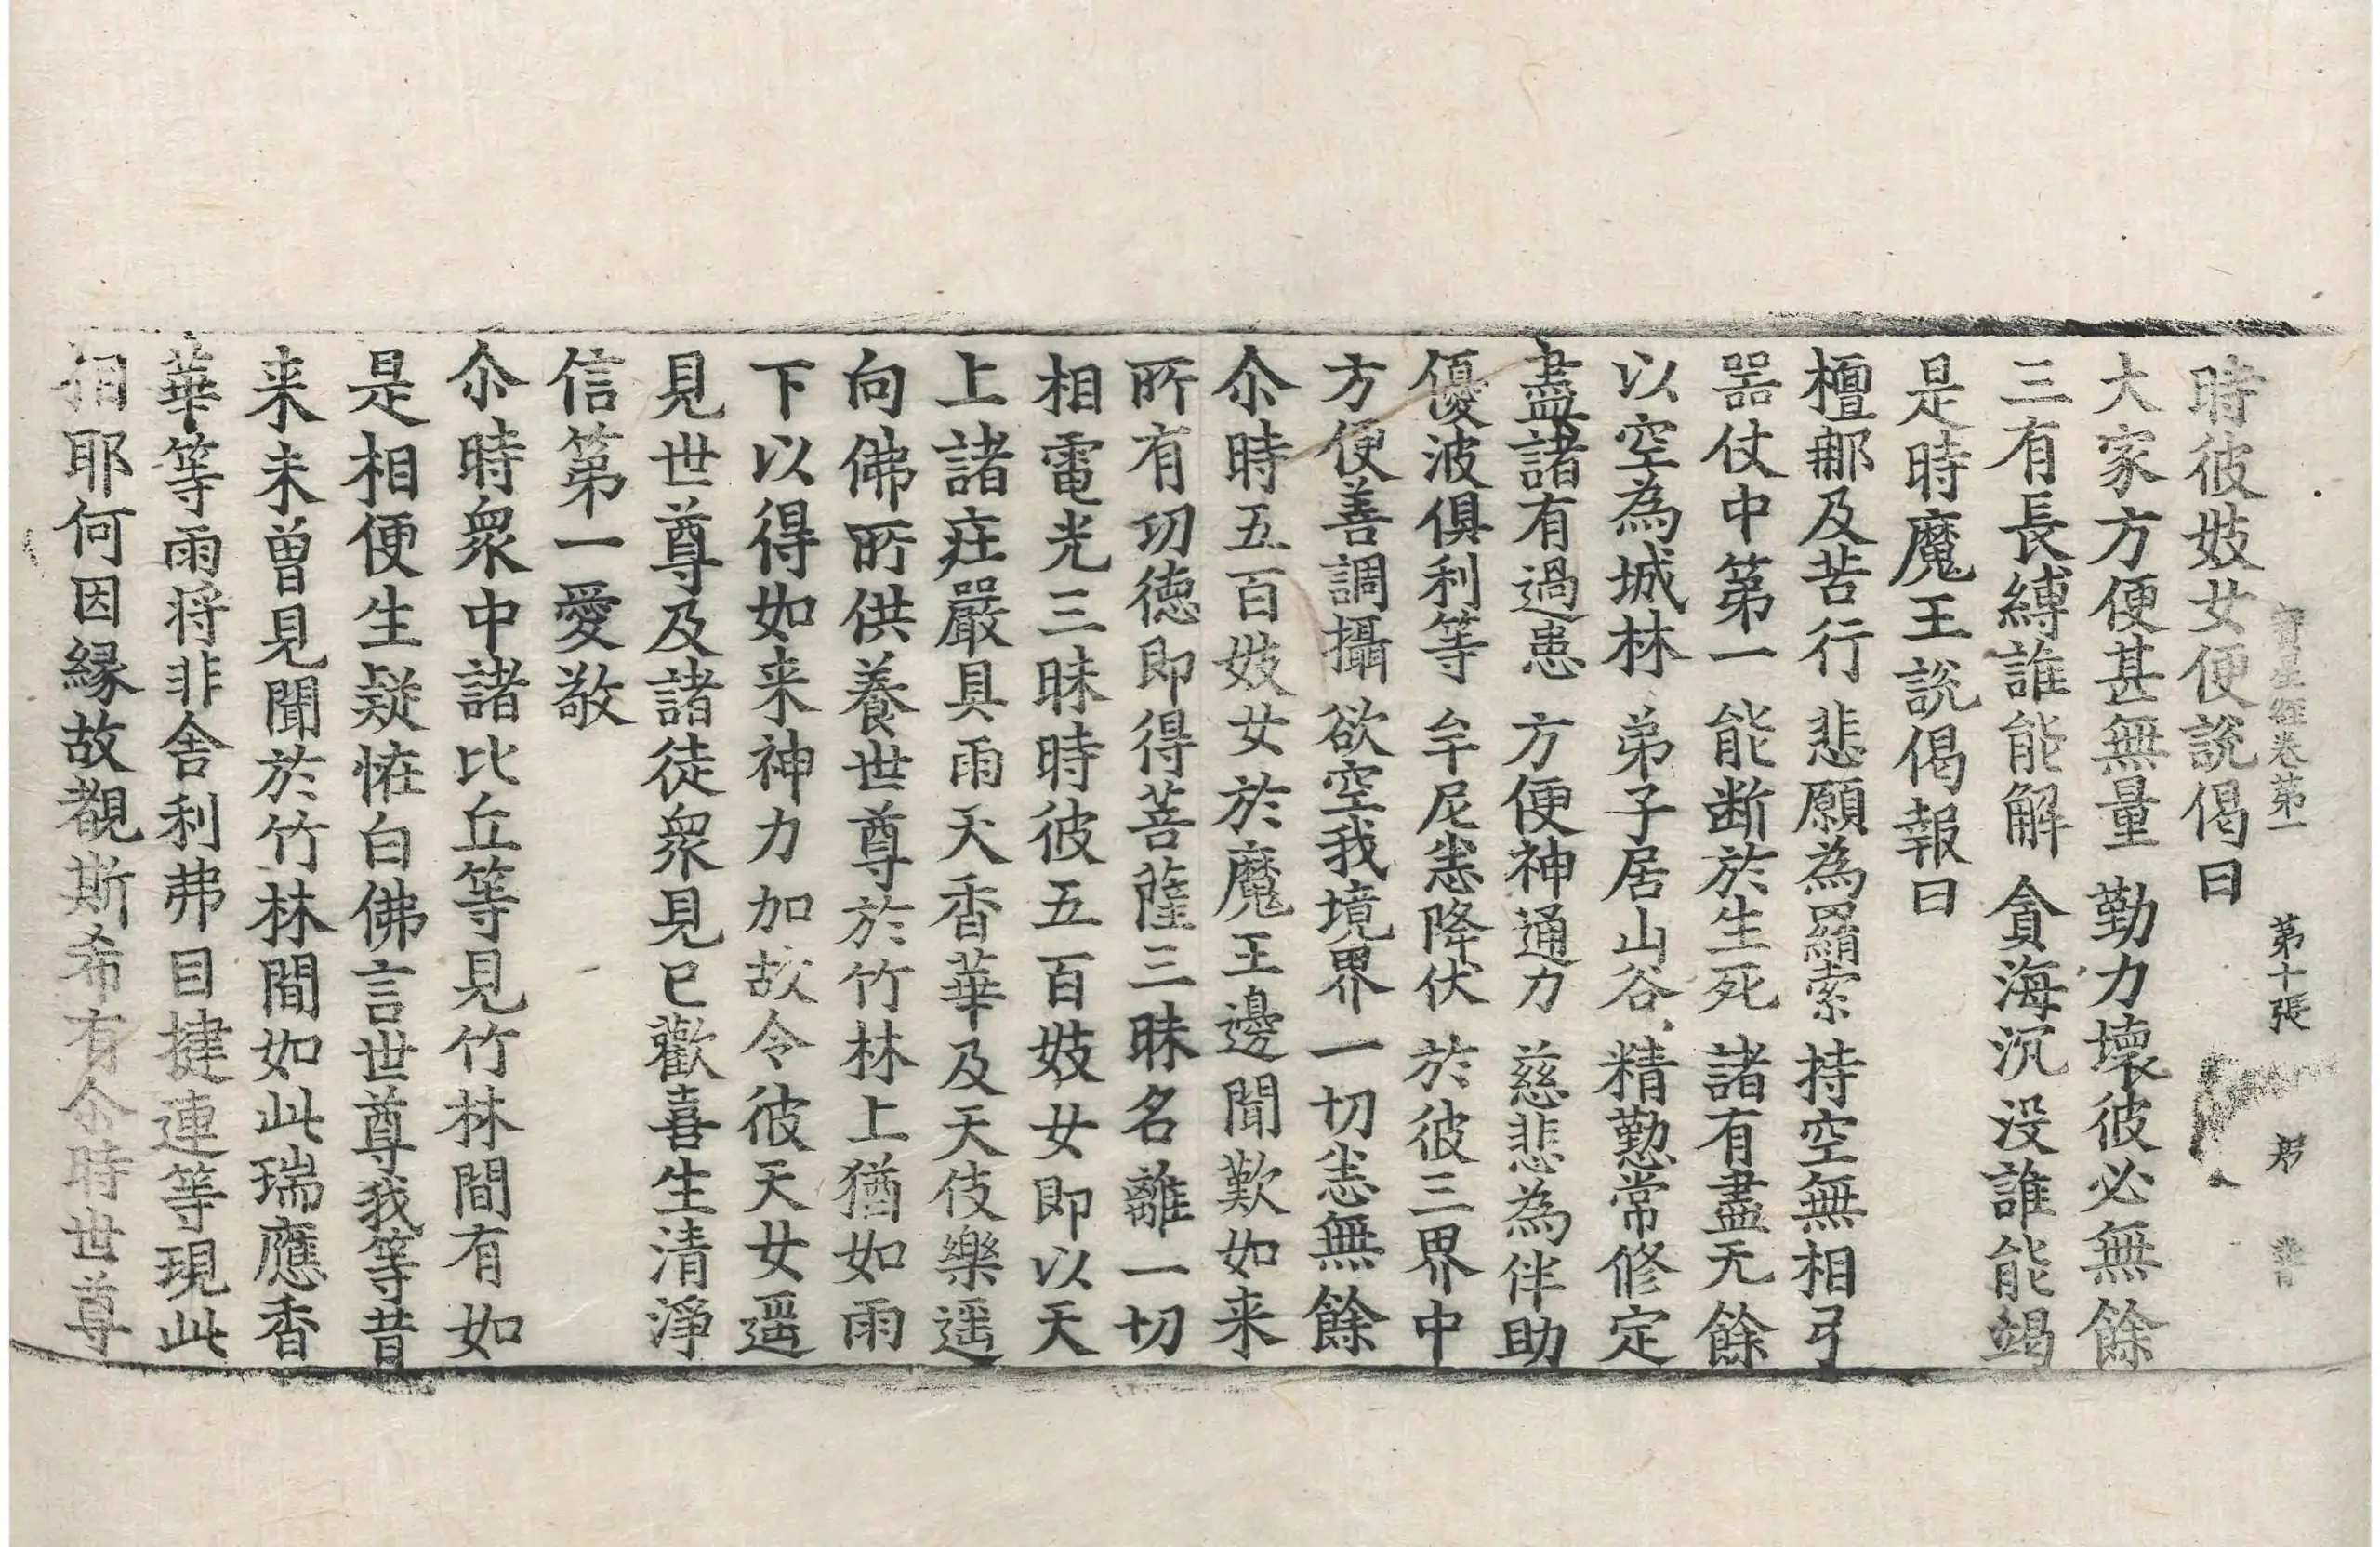 寳星經卷第一　第十張
時彼妓女便說偈曰
大家方便甚無量　勤力壞彼必無餘
三有長縛誰能解　貪海沉没誰能竭
是時魔王說偈報曰
檀那及苦行　悲願為羅索　持空無相弓
器仗中第一　能断於生死　諸有盡无餘
以空為城林　弟子居山谷　精懃常修定
盡諸有過患　方便神通力　慈悲為伴助
優波俱利等　牟尼悉降伏　於彼三界中
方便善調攝　欲空我境界　一切悉無餘
尒時五百妓女於魔王邊聞歎如来
所有功徳即得菩薩三昧名離一切
相電光三昧時彼五百妓女即以天
上諸莊嚴具雨天香華及天伎樂遥
向佛所供養世尊於竹林上猶如雨
下以得如来神力加故令彼天女遥
見世尊及諸徒衆見已歡喜生清淨
信第一愛敬
尒時衆中諸比丘等見竹林間有如
是相便生疑恠白佛言世尊我等昔
来未曾見聞於竹林間如此瑞應香
華等雨将非舍利弗目揵連等現此
相耶何因縁故覩斯希有尒時世尊